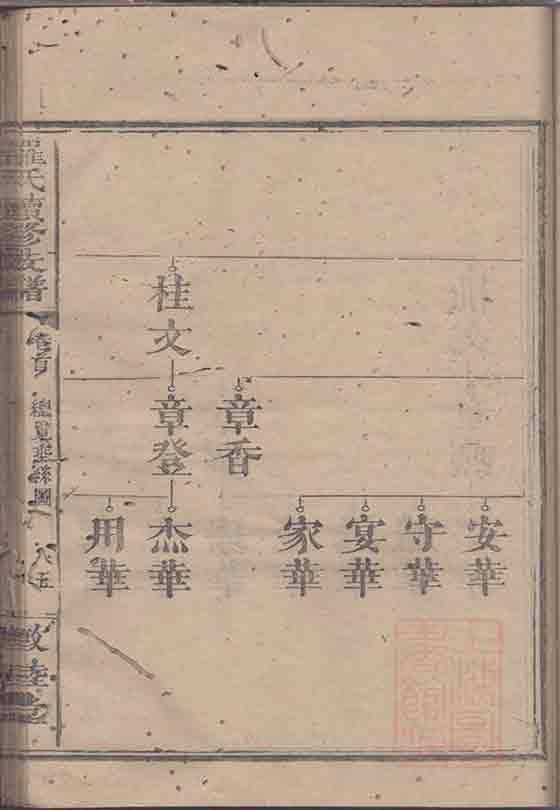 桂文
章香
章登
安華
守華
宴華
家華
杰華
用華
羅氏續修族譜
卷首
總覽垂絲圖
八五
敦睦堂